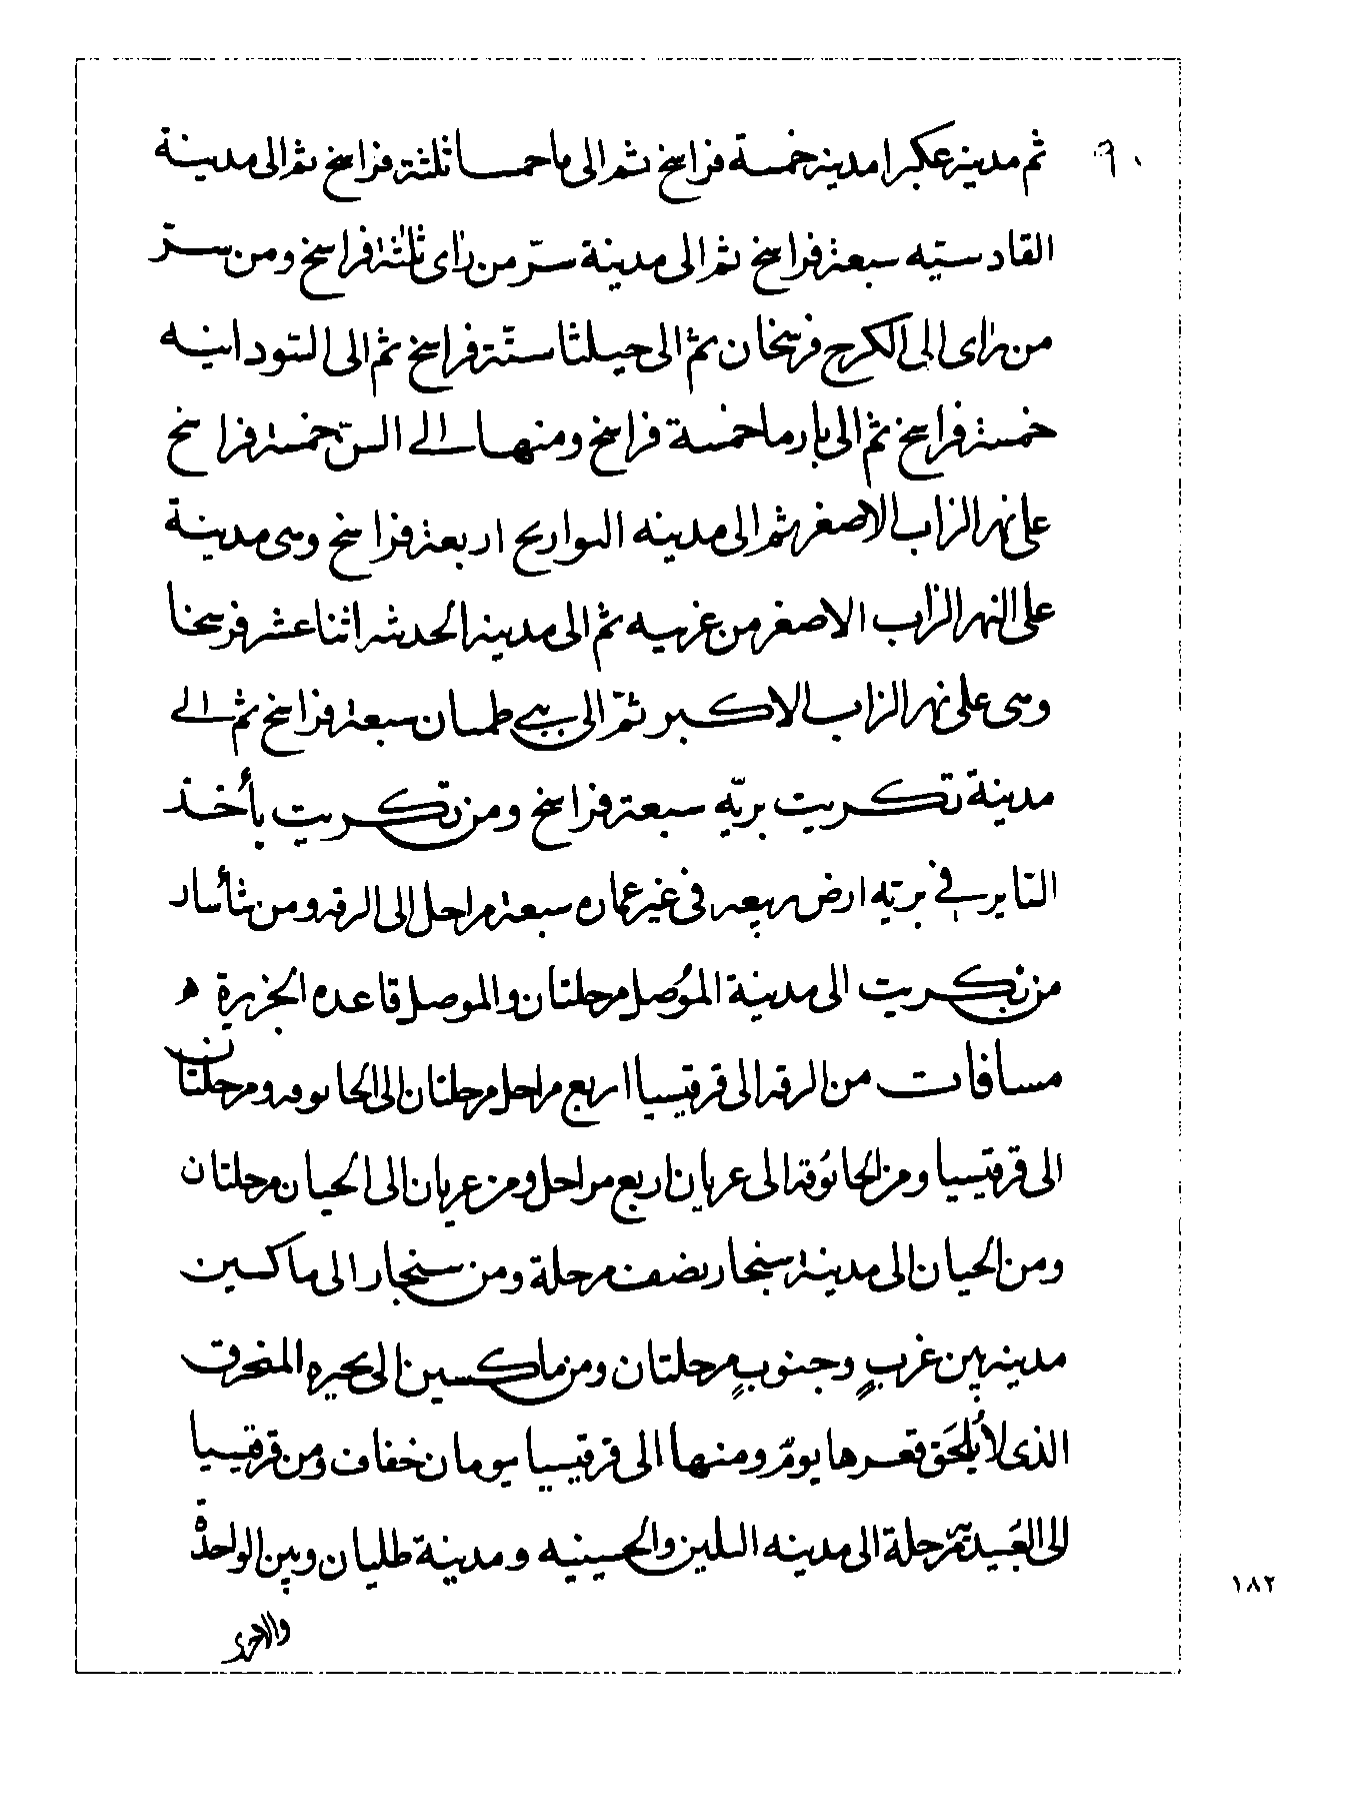 ٩٠
ثم مدينة عكبرا مدينة خمسة فراسخ ثم الى باحمسا ثلثة فراسخ ثم الى مدينة
القادسيّه سبعة فراسخ ثم الى مدينة سرّ من رأى ثلثة فراسخ ومن سرّ
من رأى الى الكرج فرسخان ثم الى جبلتا ستّة فراسخ ثم الى السودانيه
خمسة فراسخ ثم الى بارما خمسة فراسخ ومنها الى السنّ خمسة فراسخ
على نهر الزاب الاصغر ثم الى مدينه البواريح اربعة فراسخ وهى مدينة
على النهر الزاب الاصغر من غربيه ثم الى مدينة الحدثه اثنا عشر فرسخا
وهى على نهر الزاب الاكبر ثمّ الى بنى طمسان سبعة فراسخ ثم الى
مدينة تكريت بريّه سبعة فراسخ ومن تكريت يأخذ
الساير فى بريّه ارض ربيعه فى غير عماره سبعة مراحل الى الرقه ومن شأ سار
من تكريت الى مدينة الموُصل مرحلتان والموصل قاعده الجزيرة ه
مسافات من الرقه الى قرقيسيا اربع مراحل مرحلتان الى الخانوقه ومرحلتان
الى قرقيسيا ومن الخانوقه الى عربان اربع مراحل ومن عربان الى الحيان مرحلتان
ومن الحيان الى مدينة سنجار نصف مرحلة ومن سنجار الى ماكسين
مدينه بين غربٍ وجنوبٍ مرحلتان ومن ماكسين الى بحيره المنخرق
الذى لا يُلحَق قعرها يومٌ ومنها الى قرقيسيا يومان خفاف ومن قرقيسيا
الى العَبيديّه مرحلة الى مدينه السلين والحسينيه ومدينة طلبان وبين الواحدة
والاخرى
١٨٢